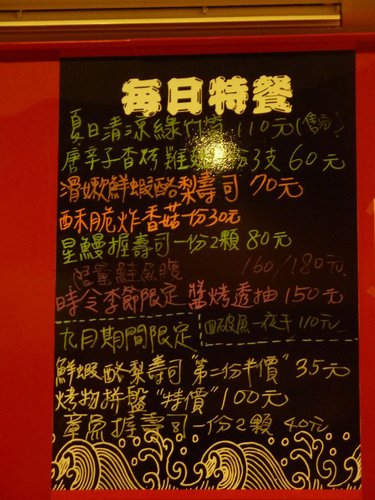 每日特餐
夏日清涼綠竹筍 110元(售完)
唐辛子香烤雞 份3支 60元
滑嫩鮮蝦酪梨壽司 70元
酥脆炸香菇一份30元
星鰻握壽司一份2顆 80元
限量鮮 160/180元
時令季節限定 醬烤透抽 150元
九月期間限定
四破魚一夜干 110元
鮮蝦酪梨壽司"第二份半價" 35元
烤物拚盤"特價" 100元
章魚握壽司一份2顆 40元